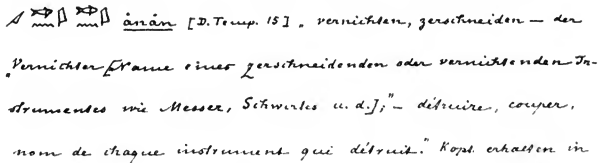 ånån [D. Temp. 15] „ vernichten, zerschneiden — der
„Vernichter [Name eines zerschneidenden oder vernichtenden In-
strumentes wie Messer, Schwertes u. d.];“ — détruire, couper,
nom de chaque instrument qui détruit.“ Kopt. erhalten in